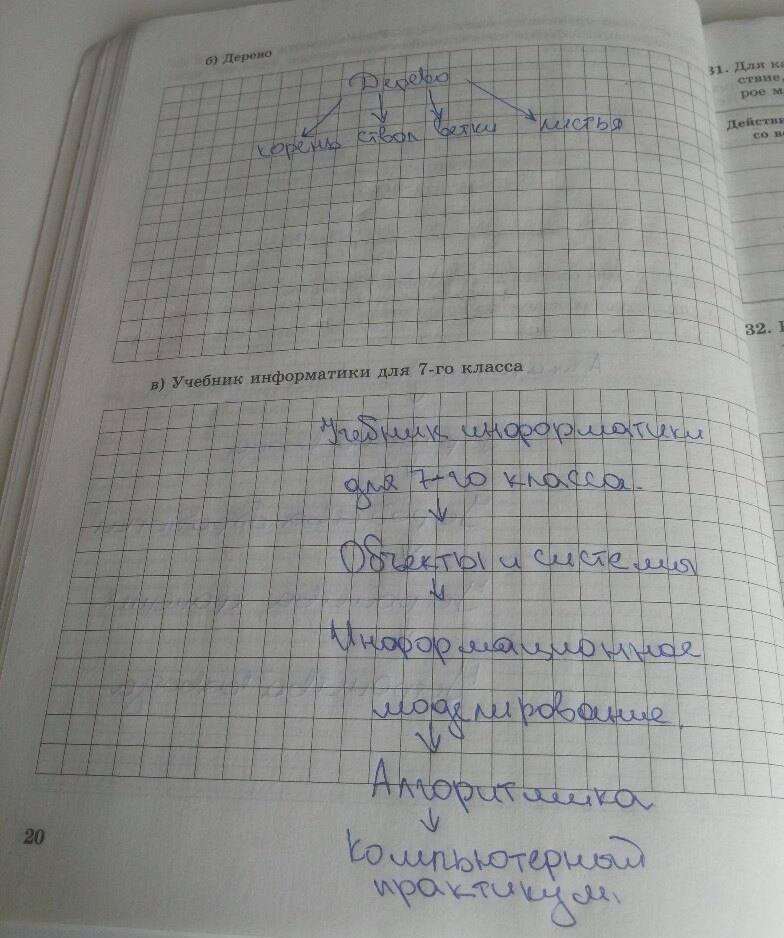 б) Дерево
Дерево
корень ствол ветки листья
в) Учебник информатики для 7-го класса
Учебник информатики
для 7-го класса.
Объекты и системы
Информационное
моделирование.
Алгоритмика
Компьютерный
практикум.
20
31. Для
ствие,
рое
Действи
со
32.